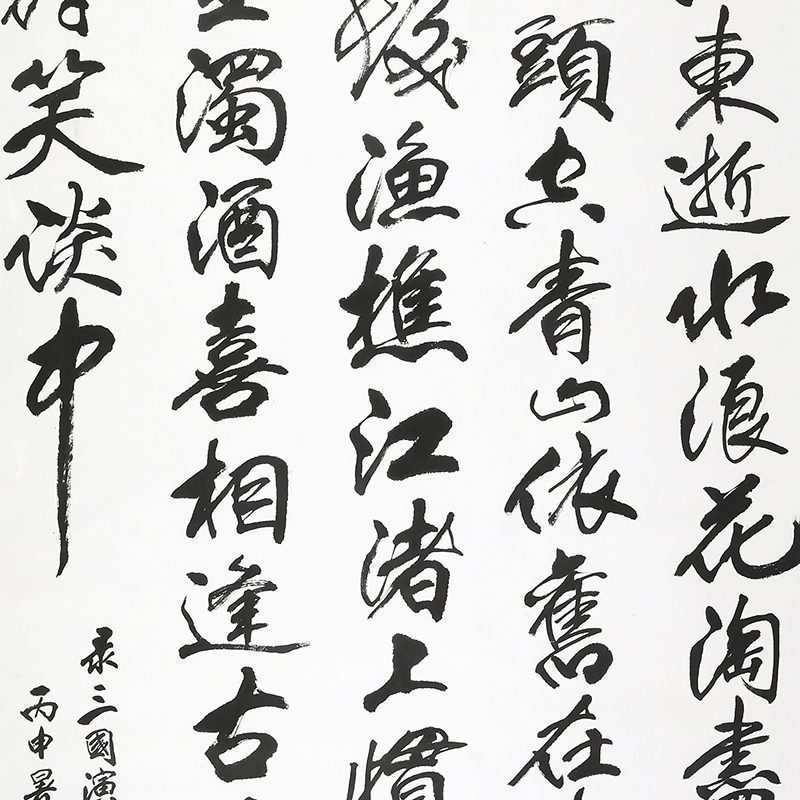 東逝水浪花淘盡
頭空青山依舊在
髮漁樵江渚上慣
濁酒喜相逢古
笑谈中
录三國演
丙申暑